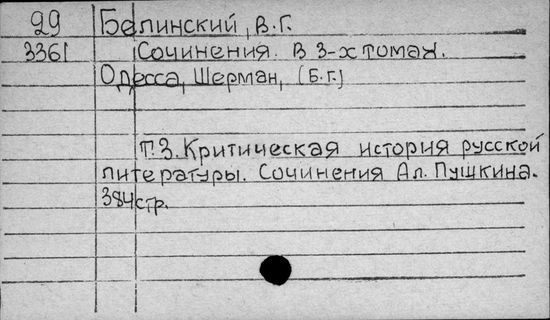 29 Белинский, В.Г.
3361 Сочинения. В 3-х томах.
Одесса, Шерман, (Б.Г.)
Т.3. Критическая история русской
литературы. Сочинения Ал. Пушкина.
384стр.